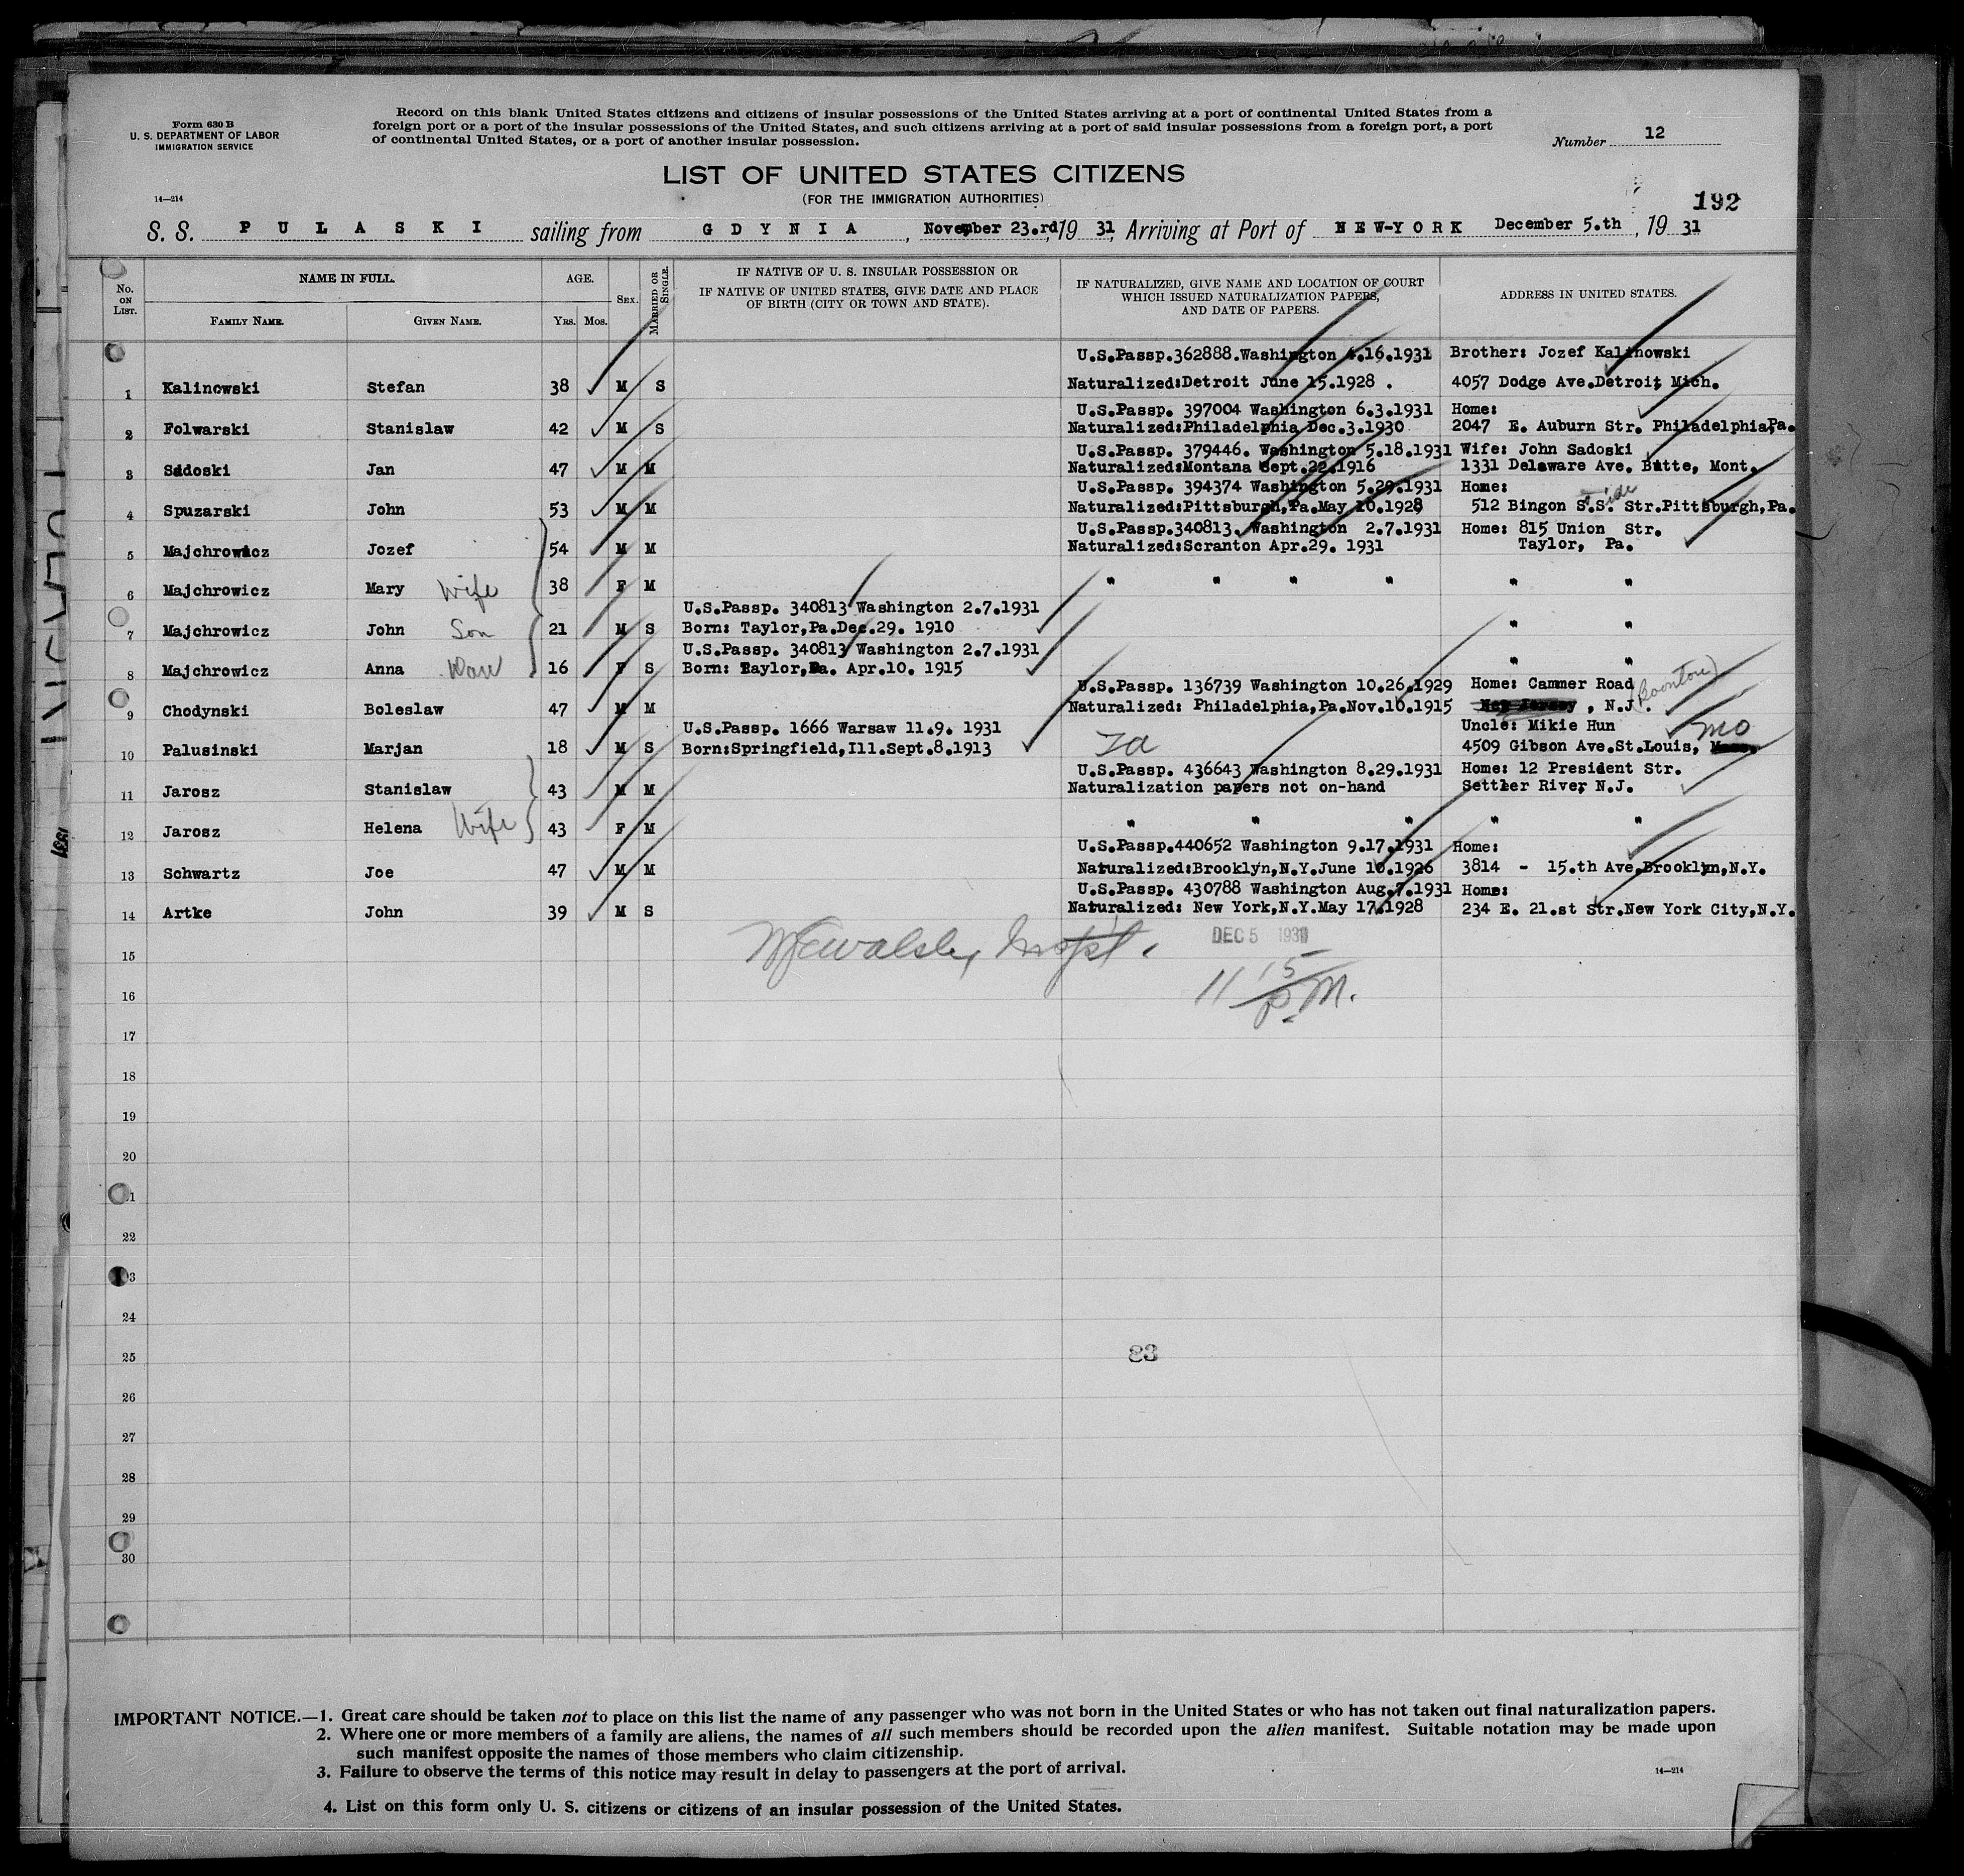 Form 630 B
U. S. DEPARTMENT OF LABOR
IMMIGRATION SERVICE
14—214
Record on this blank United States citizens and citizens of insular possessions of the United States arriving at a port of continental United States from a
foreign port or a port of the insular possessions of the United States, and such citizens arriving at a port of said insular possessions from a foreign port, a port
of continental United States, or a port of another insular possession.
Number 12
LIST OF UNITED STATES CITIZENS
(FOR THE IMMIGRATION AUTHORITIES)
192
S. S. PULASKI sailing from GDYNIA, November 23.rd, 19 31, Arriving at Port of NEW-YORK December 5.th, 19 31
No. ON LIST.
NAME IN FULL.
FAMILY NAME. GIVEN NAME.
AGE.
YRS. MOS.
SEX.
MARRIED OR SINGLE.
IF NATIVE OF U. S. INSULAR POSSESSION OR
IF NATIVE OF UNITED STATES, GIVE DATE AND PLACE
OF BIRTH (CITY OR TOWN AND STATE).
IF NATURALIZED, GIVE NAME AND LOCATION OF COURT
WHICH ISSUED NATURALIZATION PAPERS,
AND DATE OF PAPERS.
ADDRESS IN UNITED STATES.
U.S.Passp.362888.Washington 4.16.1931 Brother: Jozef Kalinowski
1 Kalinowski Stefan 38 M S Naturalized:Detroit June 15.1928 . 4057 Dodge Ave.Detroit, Mich.
U.S.Passp. 397004 Washington 6.3.1931 Home:
2 Folwarski Stanislaw 42 M S Naturalized:Philadelphia Dec.3.1930 2047 E. Auburn Str. Philadelphia,Pa.
U.S.Passp. 379446. Washington 5.18.1931 Wife: John Sadoski
3 Sadoski Jan 47 M M Naturalized:Montana Sept.22.1916 1331 Delaware Ave. Butte, Mont.
U.S.Passp. 394374 Washington 5.29.1931 Home:
4 Spuzarski John 53 M M Naturalized:Pittsburgh,Pa.May 10.1928 512 Bingon S.S. Side Str.Pittsburgh,Pa.
U.S.Passp.340813. Washington 2.7.1931 Home: 815 Union Str.
5 Majchrowicz Jozef 54 M M Naturalized:Scranton Apr.29. 1931 Taylor, Pa.
6 Majchrowicz Mary Wife 38 F M " " " " " "
U.S.Passp. 340813 Washington 2.7.1931
7 Majchrowicz John Son 21 M S Born: Taylor,Pa.Dec.29. 1910 " "
U.S.Passp. 340813 Washington 2.7.1931
8 Majchrowicz Anna Dau 16 F S Born: Taylor,Pa. Apr.10. 1915 " "
U.S.Passp. 136739 Washington 10.26.1929 Home: Cammer Road (Boonton)
9 Chodynski Boleslaw 47 M M Naturalized: Philadelphia,Pa.Nov.10.1915 New Jersey , N.J.
U.S.Passp. 1666 Warsaw 11.9. 1931 Uncle: Mikie Hun
10 Palusinski Marjan 18 M S Born:Springfield,Ill.Sept.8.1913 4509 Gibson Ave.St.Louis, Mo
U.S.Passp. 436643 Washington 8.29.1931 Home: 12 President Str.
11 Jarosz Stanislaw 43 M M Naturalization papers not on-hand Setther River, N.J.
12 Jarosz Helena Wife 43 F M " " " " "
U.S.Passp.440652 Washington 9.17.1931 Home:
13 Schwartz Joe 47 M M Naturalized:Brooklyn,N.Y.June 10.1926 3814 - 15.th Ave.Brooklyn,N.Y.
U.S.Passp. 430788 Washington Aug.7.1931 Home:
14 Artke John 39 M S Naturalized: New York,N.Y.May 17.1928 234 E. 21.st Str.New York City,N.Y.
DEC 5 1931
15
11 15 P.M.
16
17
18
19
20
21
22
23
24
25
83
26
27
28
29
30
IMPORTANT NOTICE.—1. Great care should be taken not to place on this list the name of any passenger who was not born in the United States or who has not taken out final naturalization papers.
2. Where one or more members of a family are aliens, the names of all such members should be recorded upon the alien manifest. Suitable notation may be made upon
such manifest opposite the names of those members who claim citizenship.
3. Failure to observe the terms of this notice may result in delay to passengers at the port of arrival.
14—214
4. List on this form only U. S. citizens or citizens of an insular possession of the United States.